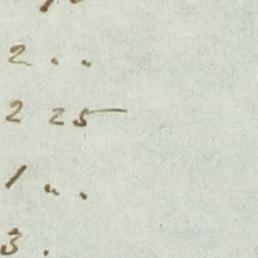 2 . .
2 25
1 " .
3 .